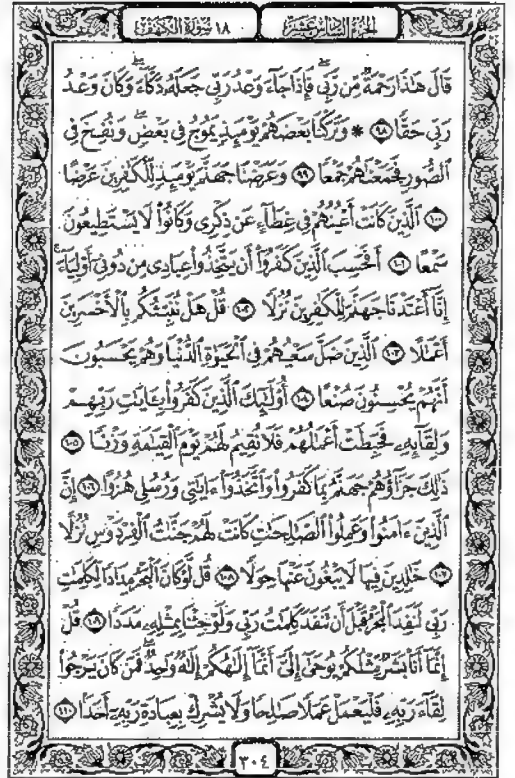 الجزء السادس عشر
١٨ سورة الكهف
قَالَ هَٰذَا رَحْمَةٌ مِّن رَّبِّي فَإِذَا جَآءَ وَعْدُ رَبِّي جَعَلَهُۥ دَكَّآءَ وَكَانَ وَعْدُ
رَبِّي حَقًّا ٩٨ * وَتَرَكْنَا بَعْضَهُمْ يَوْمَئِذٍ يَمُوجُ فِي بَعْضٍ وَنُفِخَ فِي
ٱلصُّورِ فَجَمَعْنَٰهُمْ جَمْعًا ٩٩ وَعَرَضْنَا جَهَنَّمَ يَوْمَئِذٍ لِّلْكَٰفِرِينَ عَرْضًا
١٠٠ ٱلَّذِينَ كَانَتْ أَعْيُنُهُمْ فِي غِطَآءٍ عَن ذِكْرِي وَكَانُوا۟ لَا يَسْتَطِيعُونَ
سَمْعًا ١٠١ أَفَحَسِبَ ٱلَّذِينَ كَفَرُوٓا۟ أَن يَتَّخِذُوا۟ عِبَادِي مِن دُونِيٓ أَوْلِيَآءَ
إِنَّآ أَعْتَدْنَا جَهَنَّمَ لِلْكَٰفِرِينَ نُزُلًا ١٠٢ قُلْ هَلْ نُنَبِّئُكُم بِٱلْأَخْسَرِينَ
أَعْمَٰلًا ١٠٣ ٱلَّذِينَ ضَلَّ سَعْيُهُمْ فِي ٱلْحَيَوٰةِ ٱلدُّنْيَا وَهُمْ يَحْسَبُونَ
أَنَّهُمْ يُحْسِنُونَ صُنْعًا ١٠٤ أُو۟لَٰٓئِكَ ٱلَّذِينَ كَفَرُوا۟ بِـَٔايَٰتِ رَبِّهِمْ
وَلِقَآئِهِۦ فَحَبِطَتْ أَعْمَٰلُهُمْ فَلَا نُقِيمُ لَهُمْ يَوْمَ ٱلْقِيَٰمَةِ وَزْنًا ١٠٥
ذَٰلِكَ جَزَآؤُهُمْ جَهَنَّمُ بِمَا كَفَرُوا۟ وَٱتَّخَذُوٓا۟ ءَايَٰتِي وَرُسُلِي هُزُوًا ١٠٦ إِنَّ
ٱلَّذِينَ ءَامَنُوا۟ وَعَمِلُوا۟ ٱلصَّٰلِحَٰتِ كَانَتْ لَهُمْ جَنَّٰتُ ٱلْفِرْدَوْسِ نُزُلًا
١٠٧ خَٰلِدِينَ فِيهَا لَا يَبْغُونَ عَنْهَا حِوَلًا ١٠٨ قُل لَّوْ كَانَ ٱلْبَحْرُ مِدَادًا لِّكَلِمَٰتِ
رَبِّي لَنَفِدَ ٱلْبَحْرُ قَبْلَ أَن تَنفَدَ كَلِمَٰتُ رَبِّي وَلَوْ جِئْنَا بِمِثْلِهِۦ مَدَدًا ١٠٩ قُلْ
إِنَّمَآ أَنَا۠ بَشَرٌ مِّثْلُكُمْ يُوحَىٰٓ إِلَيَّ أَنَّمَآ إِلَٰهُكُمْ إِلَٰهٌ وَٰحِدٌ فَمَن كَانَ يَرْجُوا۟
لِقَآءَ رَبِّهِۦ فَلْيَعْمَلْ عَمَلًا صَٰلِحًا وَلَا يُشْرِكْ بِعِبَادَةِ رَبِّهِۦٓ أَحَدًۢا ١١٠
٣٠٤